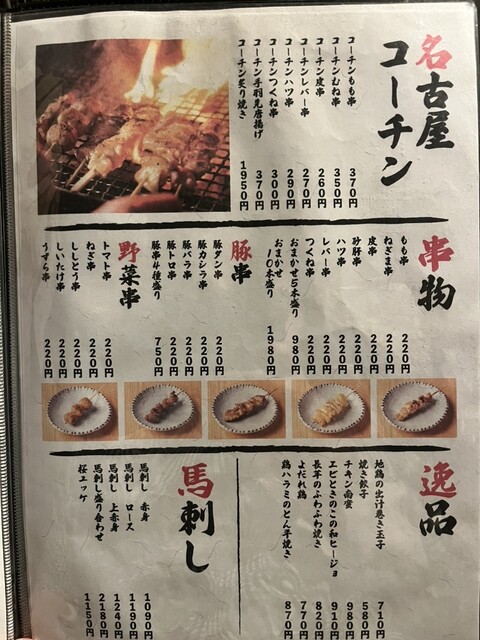 名古屋
コーチン
コーチンもも串 370円
コーチンむね串 350円
コーチン皮串 260円
コーチンレバー串 270円
コーチンハツ串 290円
コーチンつくね串 300円
コーチン手羽先唐揚げ 370円
コーチン炙り焼き 1950円
串物
もも串 220円
ねぎま串 220円
皮串 220円
砂肝串 220円
ハツ串 220円
レバー串 220円
つくね串 220円
おまかせ5本盛り 980円
おまかせ10本盛り 1980円
豚串
豚タン串 220円
豚カシラ串 220円
豚バラ串 220円
豚トロ串 220円
豚串4種盛り 750円
野菜串
トマト串 220円
ねぎ串 220円
ししとう串 220円
しいたけ串 220円
うずら串 220円
逸品
地鶏の出汁巻き玉子 710円
焼き餃子 580円
チキン南蛮 980円
エビときのこの和ヒージョ 910円
長芋のふわふわ焼き 820円
よだれ鶏 770円
鶏ハラミのとん平焼き 870円
馬刺し
馬刺し 赤身 1090円
馬刺し ロース 1190円
馬刺し 上赤身 1240円
馬刺し盛り合わせ 2180円
桜ユッケ 1150円